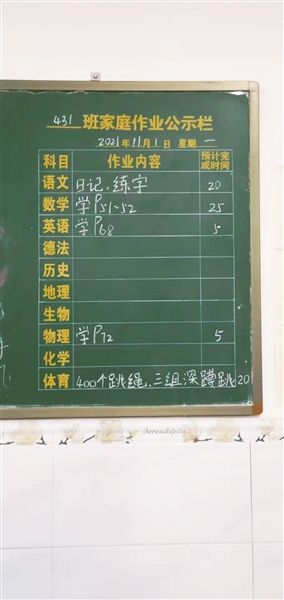 431 班家庭作业公示栏
2021年11月1日 星期一
科目 作业内容 预计完成时间
语文 日记、练字 20
数学 学P51~52 25
英语 学P68 5
德法
历史
地理
生物
物理 学P72 5
化学
体育 400个跳绳、三组深蹲跳 20
Serendipity